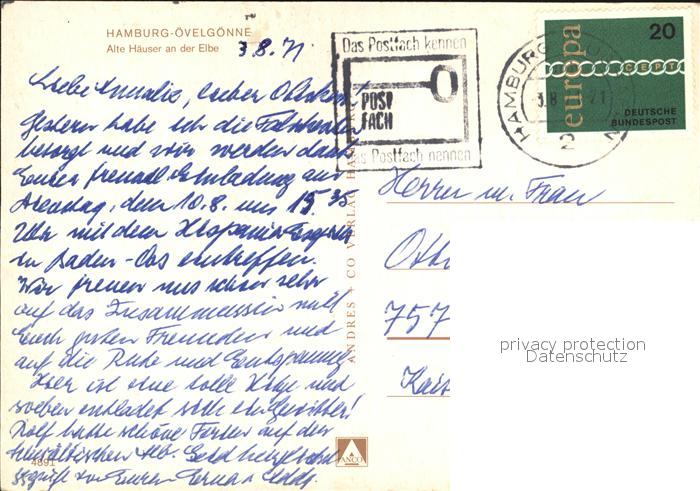 HAMBURG-ÖVELGÖNNE
Alte Häuser an der Elbe
3.8.71
Liebe Annelie, lieber
Gestern habe ich die Fahrkarten
besorgt und wir werden dank
Eurer freundl. Einladung am
Dienstag, dem 10.8. um 15.35
Uhr mit dem Hispania Express
in Baden-Oos eintreffen.
Wir freuen uns schon sehr
auf das Zusammensein mit
Euch guten Freunden und
auf die Ruhe und Entspannung.
Hier ist eine tolle Hitze und
soeben entladet sich ein Gewitter!
Rolf hatte schöne Ferien auf der
Schwäbischen Alb. Seid herzlichst
gegrüßt von Euren Erna +
4891
ANDRES + CO VERLAG HAMBURG
ANCO
Das Postfach kennen
POST
FACH
das Postfach nennen
HAMBURG
3.8.71
europa
20
CEPT
DEUTSCHE
BUNDESPOST
Herrn u. Frau
Oth
757
privacy protection
Datenschutz